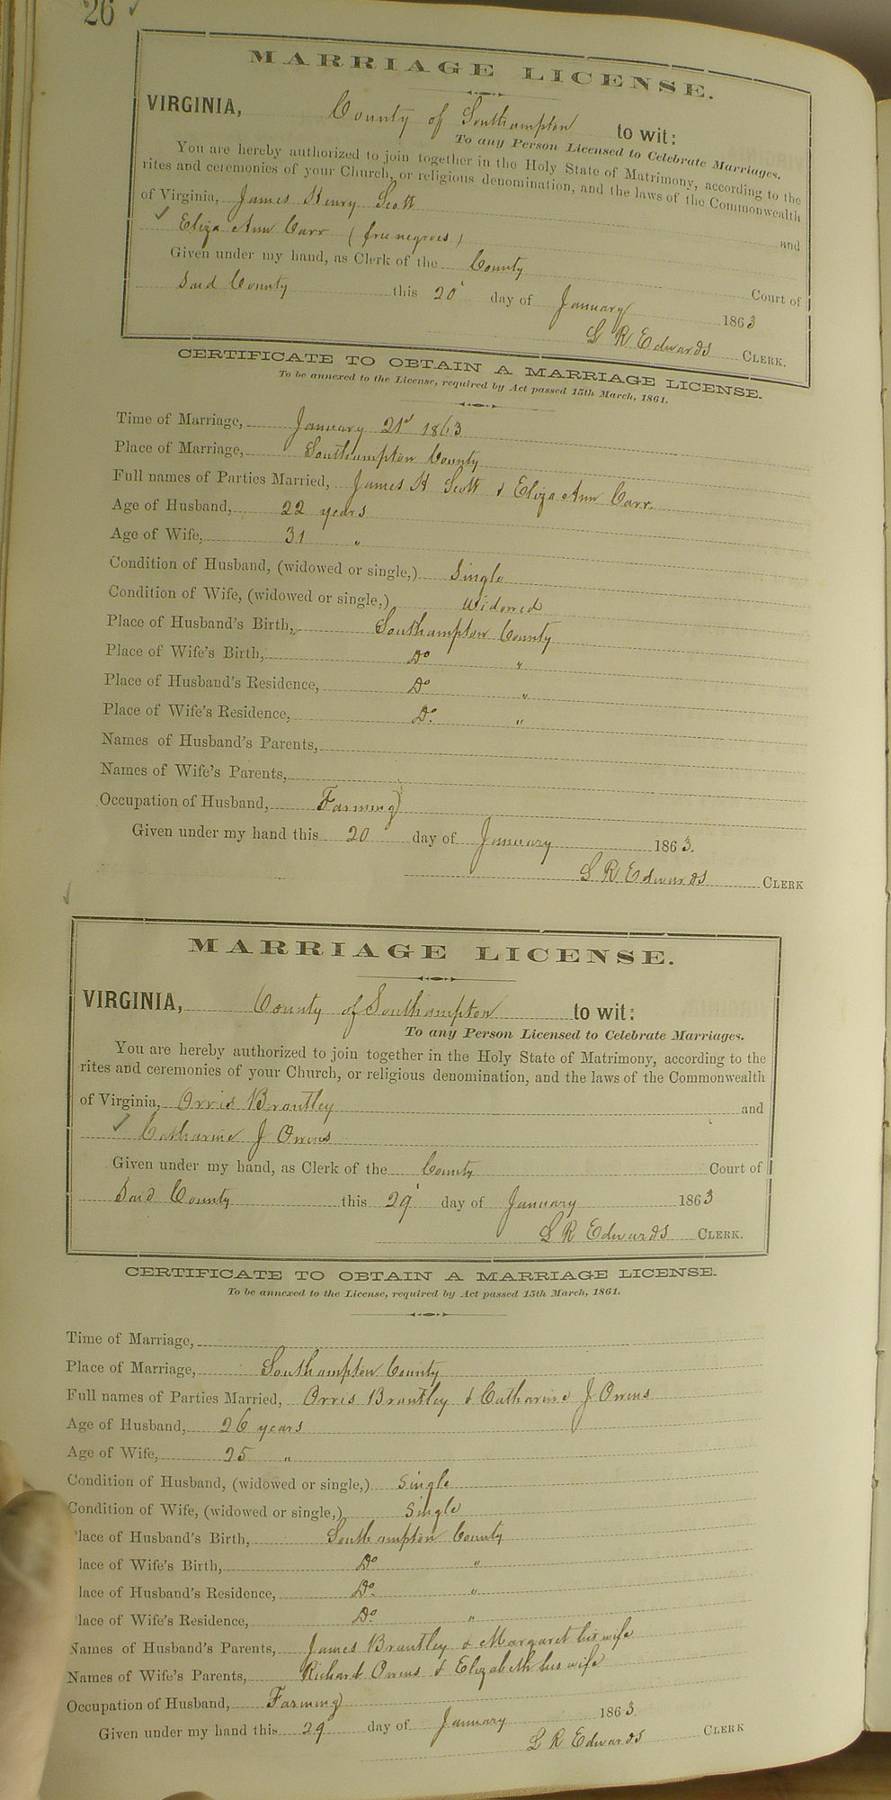 26
MARRIAGE LICENSE.
VIRGINIA, County of Southampton to wit:
To any Person Licensed to Celebrate Marriages.
You are hereby authorized to join together in the Holy State of Matrimony, according to the
rites and ceremonies of your Church, or religious denomination, and the laws of the Commonwealth
of Virginia, James Henry Scott and
Eliza Ann Carr (free negroes)
Given under my hand, as Clerk of the County Court of
Said County this 20 day of January 1863
L R Edwards CLERK.
CERTIFICATE TO OBTAIN A MARRIAGE LICENSE.
To be annexed to the License, required by Act passed 15th March, 1861.
Time of Marriage, January 21st 1863
Place of Marriage, Southampton County
Full names of Parties Married, James H Scott & Eliza Ann Carr.
Age of Husband, 22 years
Age of Wife, 31 "
Condition of Husband, (widowed or single,) Single
Condition of Wife, (widowed or single,) Widowed
Place of Husband's Birth, Southampton County
Place of Wife's Birth, Do "
Place of Husband's Residence, Do "
Place of Wife's Residence, Do. "
Names of Husband's Parents,
Names of Wife's Parents,
Occupation of Husband, Farming
Given under my hand this 20 day of January 1863.
L R Edwards CLERK
MARRIAGE LICENSE.
VIRGINIA, County of Southampton to wit:
To any Person Licensed to Celebrate Marriages.
You are hereby authorized to join together in the Holy State of Matrimony, according to the
rites and ceremonies of your Church, or religious denomination, and the laws of the Commonwealth
of Virginia, Orris Brantley and
Catharine J Owens
Given under my hand, as Clerk of the County Court of
Said County this 29 day of January 1863
L R Edwards CLERK.
CERTIFICATE TO OBTAIN A MARRIAGE LICENSE.
To be annexed to the License, required by Act passed 15th March, 1861.
Time of Marriage,
Place of Marriage, Southampton County
Full names of Parties Married, Orris Brantley & Catharine J Owens
Age of Husband, 26 years
Age of Wife, 25 "
Condition of Husband, (widowed or single,) Single
Condition of Wife, (widowed or single,) Single
lace of Husband's Birth, Southampton County
lace of Wife's Birth, Do "
lace of Husband's Residence, Do. "
lace of Wife's Residence, Do. "
Names of Husband's Parents, James Brantley & Margaret his wife
Names of Wife's Parents, Richard Owens & Elizabeth his wife
Occupation of Husband, Farming
Given under my hand this 29 day of January 1863
L R Edwards CLERK